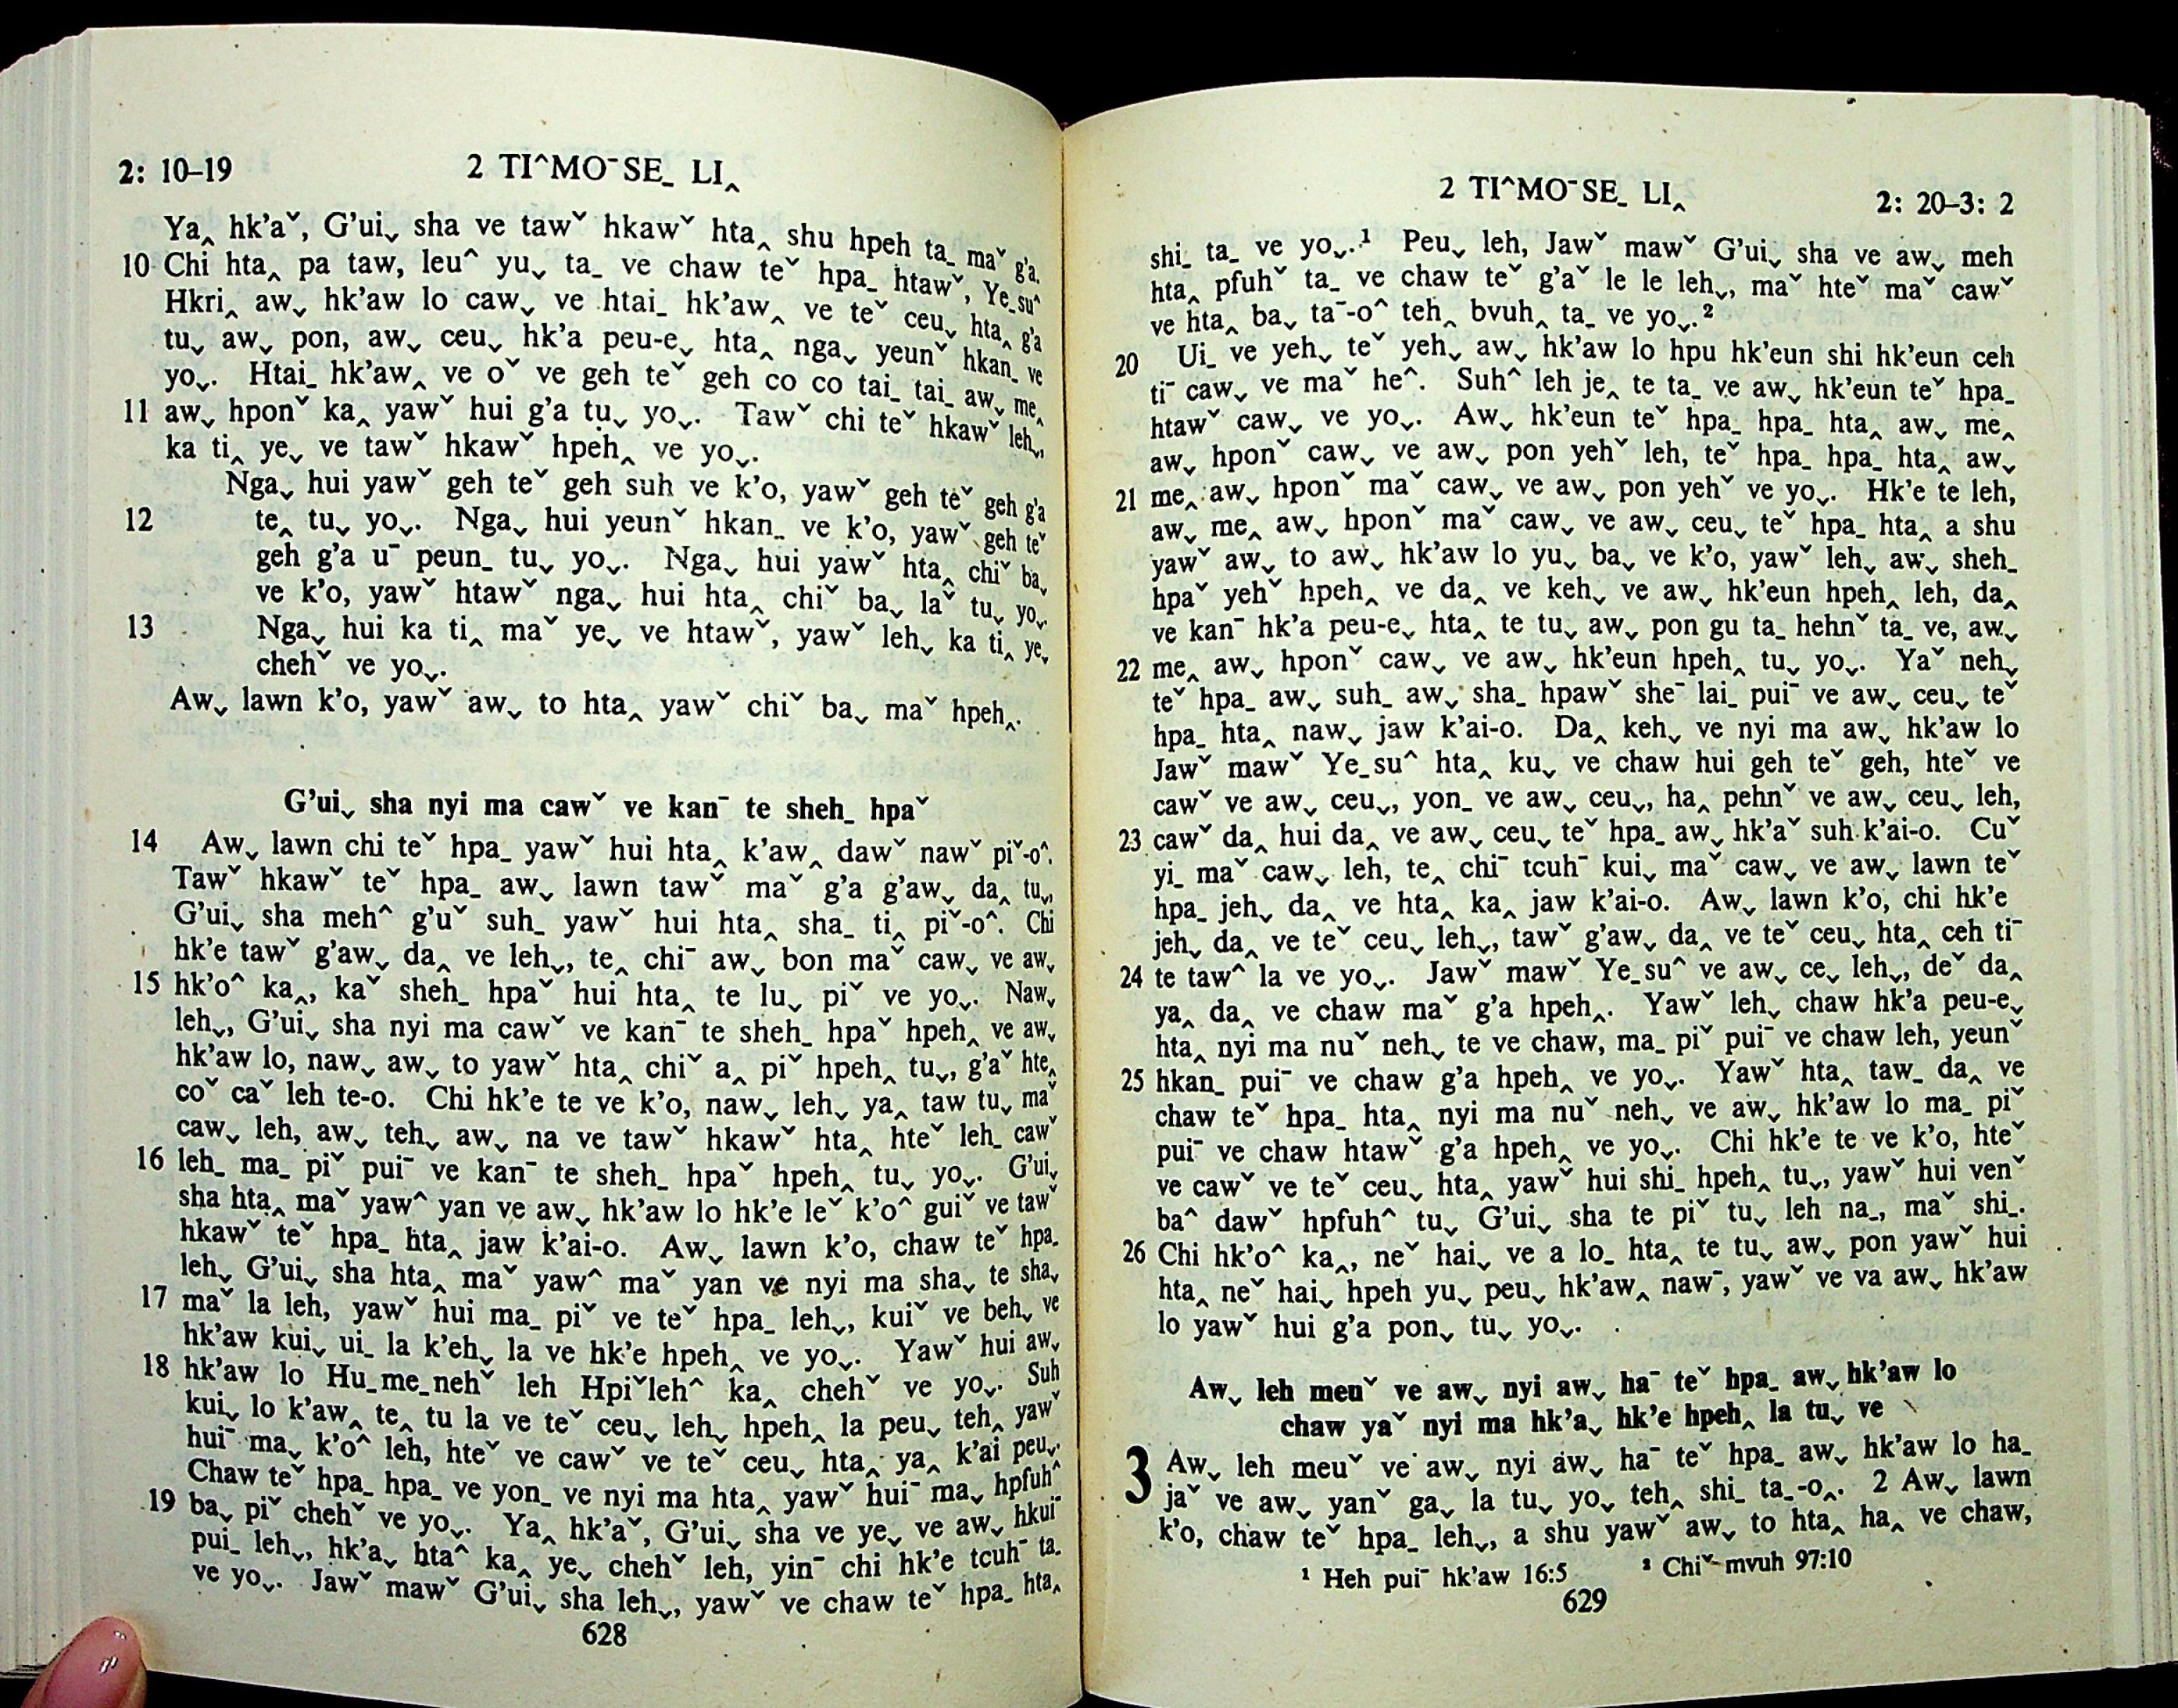 2: 10–19
2 TI^MO¯SE_ LI‸
Ya‸ hk'aˇ, G'uiˬ sha ve tawˇ hkawˇ hta‸ shu hpeh ta_ maˇ g'a.
10 Chi hta‸ pa taw, leu^ yuˬ ta_ ve chaw teˇ hpa_ htawˇ, Ye_su^
Hkri‸ awˬ hk'aw lo cawˬ ve htai_ hk'aw‸ ve teˇ ceuˬ hta‸ g'a
tuˬ awˬ pon, awˬ ceuˬ hk'a peu-eˬ hta‸ ngaˬ yeunˇ hkan_ ve
yoˬ. Htai_ hk'aw‸ ve oˇ ve geh teˇ geh co co tai_ tai_ awˬ me‸
11 awˬ hponˇ ka‸ yawˇ hui g'a tuˬ yoˬ. Tawˇ chi teˇ hkawˇ lehˬ,
ka ti‸ yeˬ ve tawˇ hkawˇ hpeh‸ ve yoˬ.
Ngaˬ hui yawˇ geh teˇ geh suh ve k'o, yawˇ geh teˇ geh g'a
12 te‸ tuˬ yoˬ. Ngaˬ hui yeunˇ hkan_ ve k'o, yawˇ geh teˇ
geh g'a u¯ peun_ tuˬ yoˬ. Ngaˬ hui yawˇ hta‸ chiˇ baˬ
ve k'o, yawˇ htawˇ ngaˬ hui hta‸ chiˇ baˬ laˇ tuˬ yoˬ.
13 Ngaˬ hui ka ti‸ maˇ yeˬ ve htawˇ, yawˇ lehˬ ka ti‸ yeˬ
chehˇ ve yoˬ.
Awˬ lawn k'o, yawˇ awˬ to hta‸ yawˇ chiˇ baˬ maˇ hpeh‸.
G'uiˬ sha nyi ma cawˇ ve kan¯ te sheh_ hpaˇ
14 Awˬ lawn chi teˇ hpa_ yawˇ hui hta‸ k'aw‸ dawˇ nawˇ piˇ-o^.
Tawˇ hkawˇ teˇ hpa_ awˬ lawn tawˇ maˇ g'a g'awˬ da‸ tuˬ,
G'uiˬ sha meh^ g'uˇ suh_ yawˇ hui hta‸ sha_ ti‸ piˇ-o^. Chi
hk'e tawˇ g'awˬ da‸ ve lehˬ, te‸ chi¯ awˬ bon maˇ cawˬ ve awˬ
15 hk'o^ ka‸, kaˇ sheh_ hpaˇ hui hta‸ te luˬ piˇ ve yoˬ. Nawˬ
lehˬ, G'uiˬ sha nyi ma cawˇ ve kan¯ te sheh_ hpaˇ hpeh‸ ve awˬ
hk'aw lo, nawˬ awˬ to yawˇ hta‸ chiˇ a‸ piˇ hpeh‸ tuˬ, g'aˇ hte‸
coˇ caˇ leh te-o. Chi hk'e te ve k'o, nawˬ lehˬ ya‸ taw tuˬ maˇ
cawˬ leh, awˬ tehˬ awˬ na ve tawˇ hkawˇ hta‸ hteˇ leh_ cawˇ
16 leh_ ma_ piˇ pui¯ ve kan¯ te sheh_ hpaˇ hpeh‸ tuˬ yoˬ. G'uiˬ
sha hta‸ maˇ yaw^ yan ve awˬ hk'aw lo hk'e leˇ k'o^ guiˇ ve tawˇ
hkawˇ teˇ hpa_ hta‸ jaw k'ai-o. Awˬ lawn k'o, chaw teˇ hpa_
lehˬ G'uiˬ sha hta‸ maˇ yaw^ maˇ yan ve nyi ma shaˬ te shaˬ
17 maˇ la leh, yawˇ hui ma_ piˇ ve teˇ hpa_ lehˬ, kuiˇ ve behˬ ve
hk'aw kuiˬ ui_ la k'ehˬ la ve hk'e hpeh‸ ve yoˬ. Yawˇ hui awˬ
18 hk'aw lo Hu_me_nehˇ leh Hpiˇleh^ ka‸ chehˇ ve yoˬ. Suh
kuiˬ lo k'aw‸ te‸ tu la ve teˇ ceuˬ lehˬ hpeh‸ la peuˬ teh‸ yawˇ
hui¯ maˬ k'o^ leh, hteˇ ve cawˇ ve teˇ ceuˬ hta‸ ya‸ k'ai peuˬ.
Chaw teˇ hpa_ hpa_ ve yon_ ve nyi ma hta‸ yawˇ hui¯ maˬ hpfuh^
19 baˬ piˇ chehˇ ve yoˬ. Ya‸ hk'aˇ, G'uiˬ sha ve yeˬ ve awˬ hkui¯
pui_ lehˬ, hk'aˬ hta^ ka‸ yeˬ chehˇ leh, yin¯ chi hk'e tcuh¯ ta_
ve yoˬ. Jawˇ mawˇ G'uiˬ sha lehˬ, yawˇ ve chaw teˇ hpa_ hta‸
628
2 TI^MO¯SE_ LI‸
2: 20–3: 2
shi_ ta_ ve yoˬ.¹ Peuˬ leh, Jawˇ mawˇ G'uiˬ sha ve awˬ meh
hta‸ pfuhˇ ta_ ve chaw teˇ g'aˇ le le lehˬ, maˇ hteˇ maˇ cawˇ
ve hta‸ baˬ ta¯-o^ teh‸ bvuh‸ ta_ ve yoˬ.²
20 Ui_ ve yehˬ teˇ yehˬ awˬ hk'aw lo hpu hk'eun shi hk'eun ceh
ti¯ cawˬ ve maˇ he^. Suh^ leh je‸ te ta_ ve awˬ hk'eun teˇ hpa_
htawˇ cawˬ ve yoˬ. Awˬ hk'eun teˇ hpa_ hpa_ hta‸ awˬ me‸
awˬ hponˇ cawˬ ve awˬ pon yehˇ leh, teˇ hpa_ hpa_ hta‸ awˬ
21 me‸ awˬ hponˇ maˇ cawˬ ve awˬ pon yehˇ ve yoˬ. Hk'e te leh,
awˬ me‸ awˬ hponˇ maˇ cawˬ ve awˬ ceuˬ teˇ hpa_ hta‸ a shu
yawˇ awˬ to awˬ hk'aw lo yuˬ baˬ ve k'o, yawˇ lehˬ awˬ sheh_
hpaˇ yehˇ hpeh‸ ve da‸ ve kehˬ ve awˬ hk'eun hpeh‸ leh, da‸
ve kan¯ hk'a peu-eˬ hta‸ te tuˬ awˬ pon gu ta_ hehnˇ ta_ ve, awˬ
22 me‸ awˬ hponˇ cawˬ ve awˬ hk'eun hpeh‸ tuˬ yoˬ. Yaˇ nehˬ
teˇ hpa_ awˬ suh_ awˬ sha_ hpawˇ she¯ lai_ pui¯ ve awˬ ceuˬ teˇ
hpa_ hta‸ nawˬ jaw k'ai-o. Da‸ kehˬ ve nyi ma awˬ hk'aw lo
Jawˇ mawˇ Ye_su^ hta‸ kuˬ ve chaw hui geh teˇ geh, hteˇ ve
cawˇ ve awˬ ceuˬ, yon_ ve awˬ ceuˬ, ha‸ pehnˇ ve awˬ ceuˬ leh,
23 cawˇ da‸ hui da‸ ve awˬ ceuˬ teˇ hpa_ awˬ hk'aˇ suh k'ai-o. Cuˇ
yi_ maˇ cawˬ leh, te‸ chi¯ tcuh¯ kuiˬ maˇ cawˬ ve awˬ lawn teˇ
hpa_ jehˬ da‸ ve hta‸ ka‸ jaw k'ai-o. Awˬ lawn k'o, chi hk'e
jehˬ da‸ ve teˇ ceuˬ lehˬ, tawˇ g'awˬ da‸ ve teˇ ceuˬ hta‸ ceh ti¯
24 te taw^ la ve yoˬ. Jawˇ mawˇ Ye_su^ ve awˬ ceˬ lehˬ, deˇ da‸
ya‸ da‸ ve chaw maˇ g'a hpeh‸. Yawˇ lehˬ chaw hk'a peu-eˬ
hta‸ nyi ma nuˇ nehˬ te ve chaw, ma_ piˇ pui¯ ve chaw leh, yeunˇ
25 hkan_ pui¯ ve chaw g'a hpeh‸ ve yoˬ. Yawˇ hta‸ taw_ da‸ ve
chaw teˇ hpa_ hta‸ nyi ma nuˇ nehˬ ve awˬ hk'aw lo ma_ piˇ
pui¯ ve chaw htawˇ g'a hpeh‸ ve yoˬ. Chi hk'e te ve k'o, hteˇ
ve cawˇ ve teˇ ceuˬ hta‸ yawˇ hui shi_ hpeh‸ tuˬ, yawˇ hui venˇ
ba^ dawˇ hpfuh^ tuˬ G'uiˬ sha te piˇ tuˬ leh na_, maˇ shi_.
26 Chi hk'o^ ka‸, neˇ haiˬ ve a lo_ hta‸ te tuˬ awˬ pon yawˇ hui
hta‸ neˇ haiˬ hpeh yuˬ peuˬ hk'aw‸ naw¯, yawˇ ve va awˬ hk'aw
lo yawˇ hui g'a ponˬ tuˬ yoˬ.
Awˬ leh meuˇ ve awˬ nyi awˬ ha¯ teˇ hpa_ awˬ hk'aw lo
chaw yaˇ nyi ma hk'aˬ hk'e hpeh‸ la tuˬ ve
3 Awˬ leh meuˇ ve awˬ nyi awˬ ha¯ teˇ hpa_ awˬ hk'aw lo ha_
jaˇ ve awˬ yanˇ gaˬ la tuˬ yoˬ teh‸ shi_ ta_-o‸. 2 Awˬ lawn
k'o, chaw teˇ hpa_ lehˬ, a shu yawˇ awˬ to hta‸ ha‸ ve chaw,
¹ Heh pui¯ hk'aw 16:5 ² Chiˇ-mvuh 97:10
629